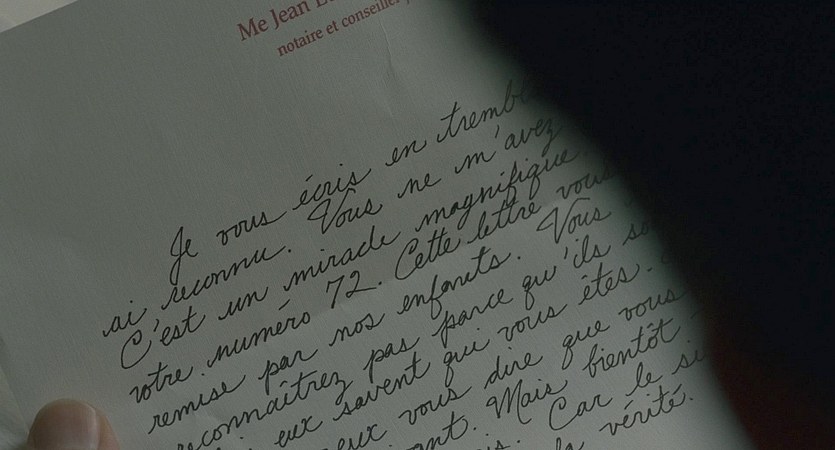 Me Jean
notaire et conseiller
Je vous écris en trembl
ai reconnu. Vous ne m'avez
C'est un miracle magnifique
votre numéro 72. Cette lettre vous
remise par nos enfants. Vous
reconnaîtrez pas parce qu'ils so
eux savent qui vous êtes.
eux vous dire que vous
ant. Mais bientôt
is. Car le si
la vérité.